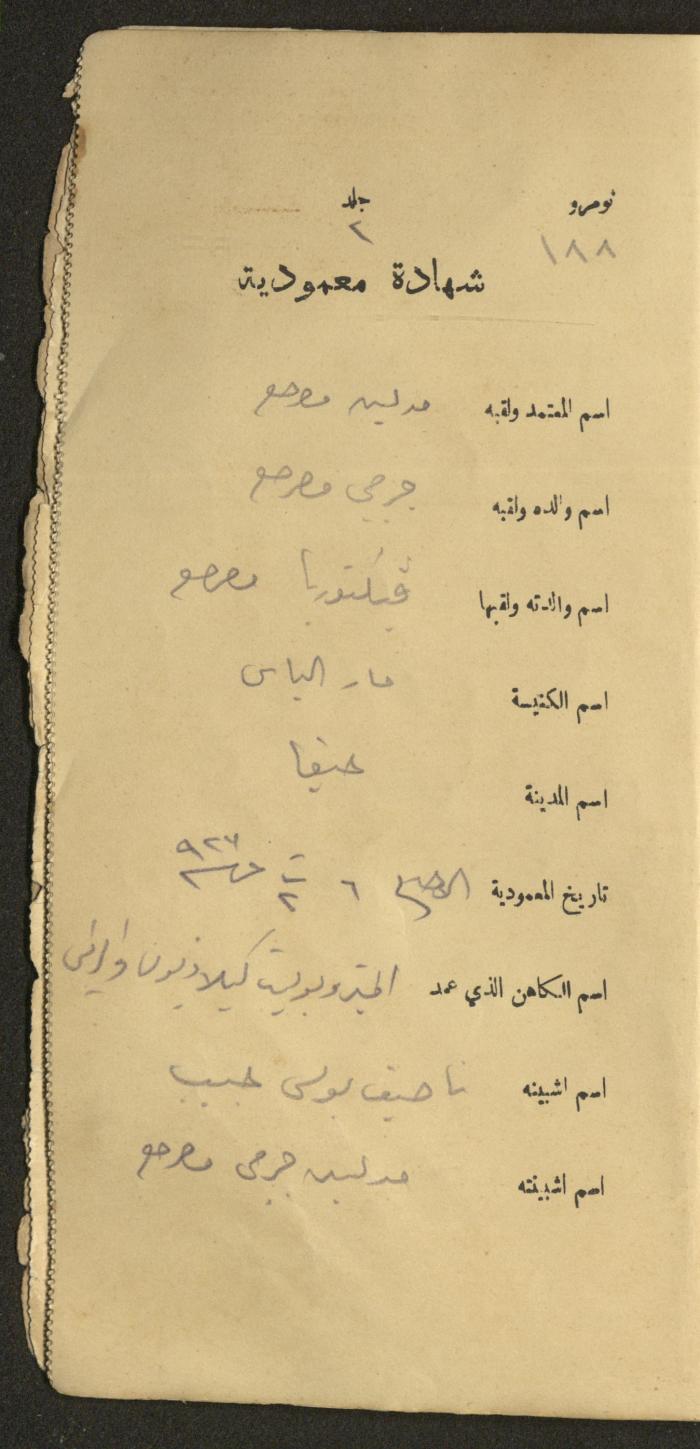 نومرو جلد
١٨٨ ٢
شهادة معمودية
اسم المعتمد ولقبه مدلين
اسم والده ولقبه جرجي
اسم والدته ولقبها ڤيكتوريا
اسم الكنيسة مار الياس
اسم المدينة حيفا
تاريخ المعمودية الاحد ٦ ت٢ سنة ٩٢٧
اسم الكاهن الذي عمد المتروبوليت
اسم اشبينه ناصيف بولس حبيب
اسم اشبينته مدلين جرجي